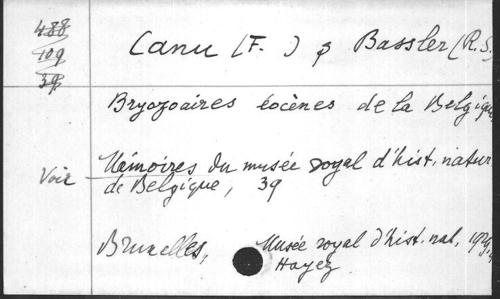 488
109
39
Canu (F. ) & Bassler (R.S.
Bryozoaires éocènes de la Belgique
Voir Mémoires du musée royal d'hist. natur
de Belgique, 39
Bruxelles, Musée royal d'hist. nat, 1929,
Hayez